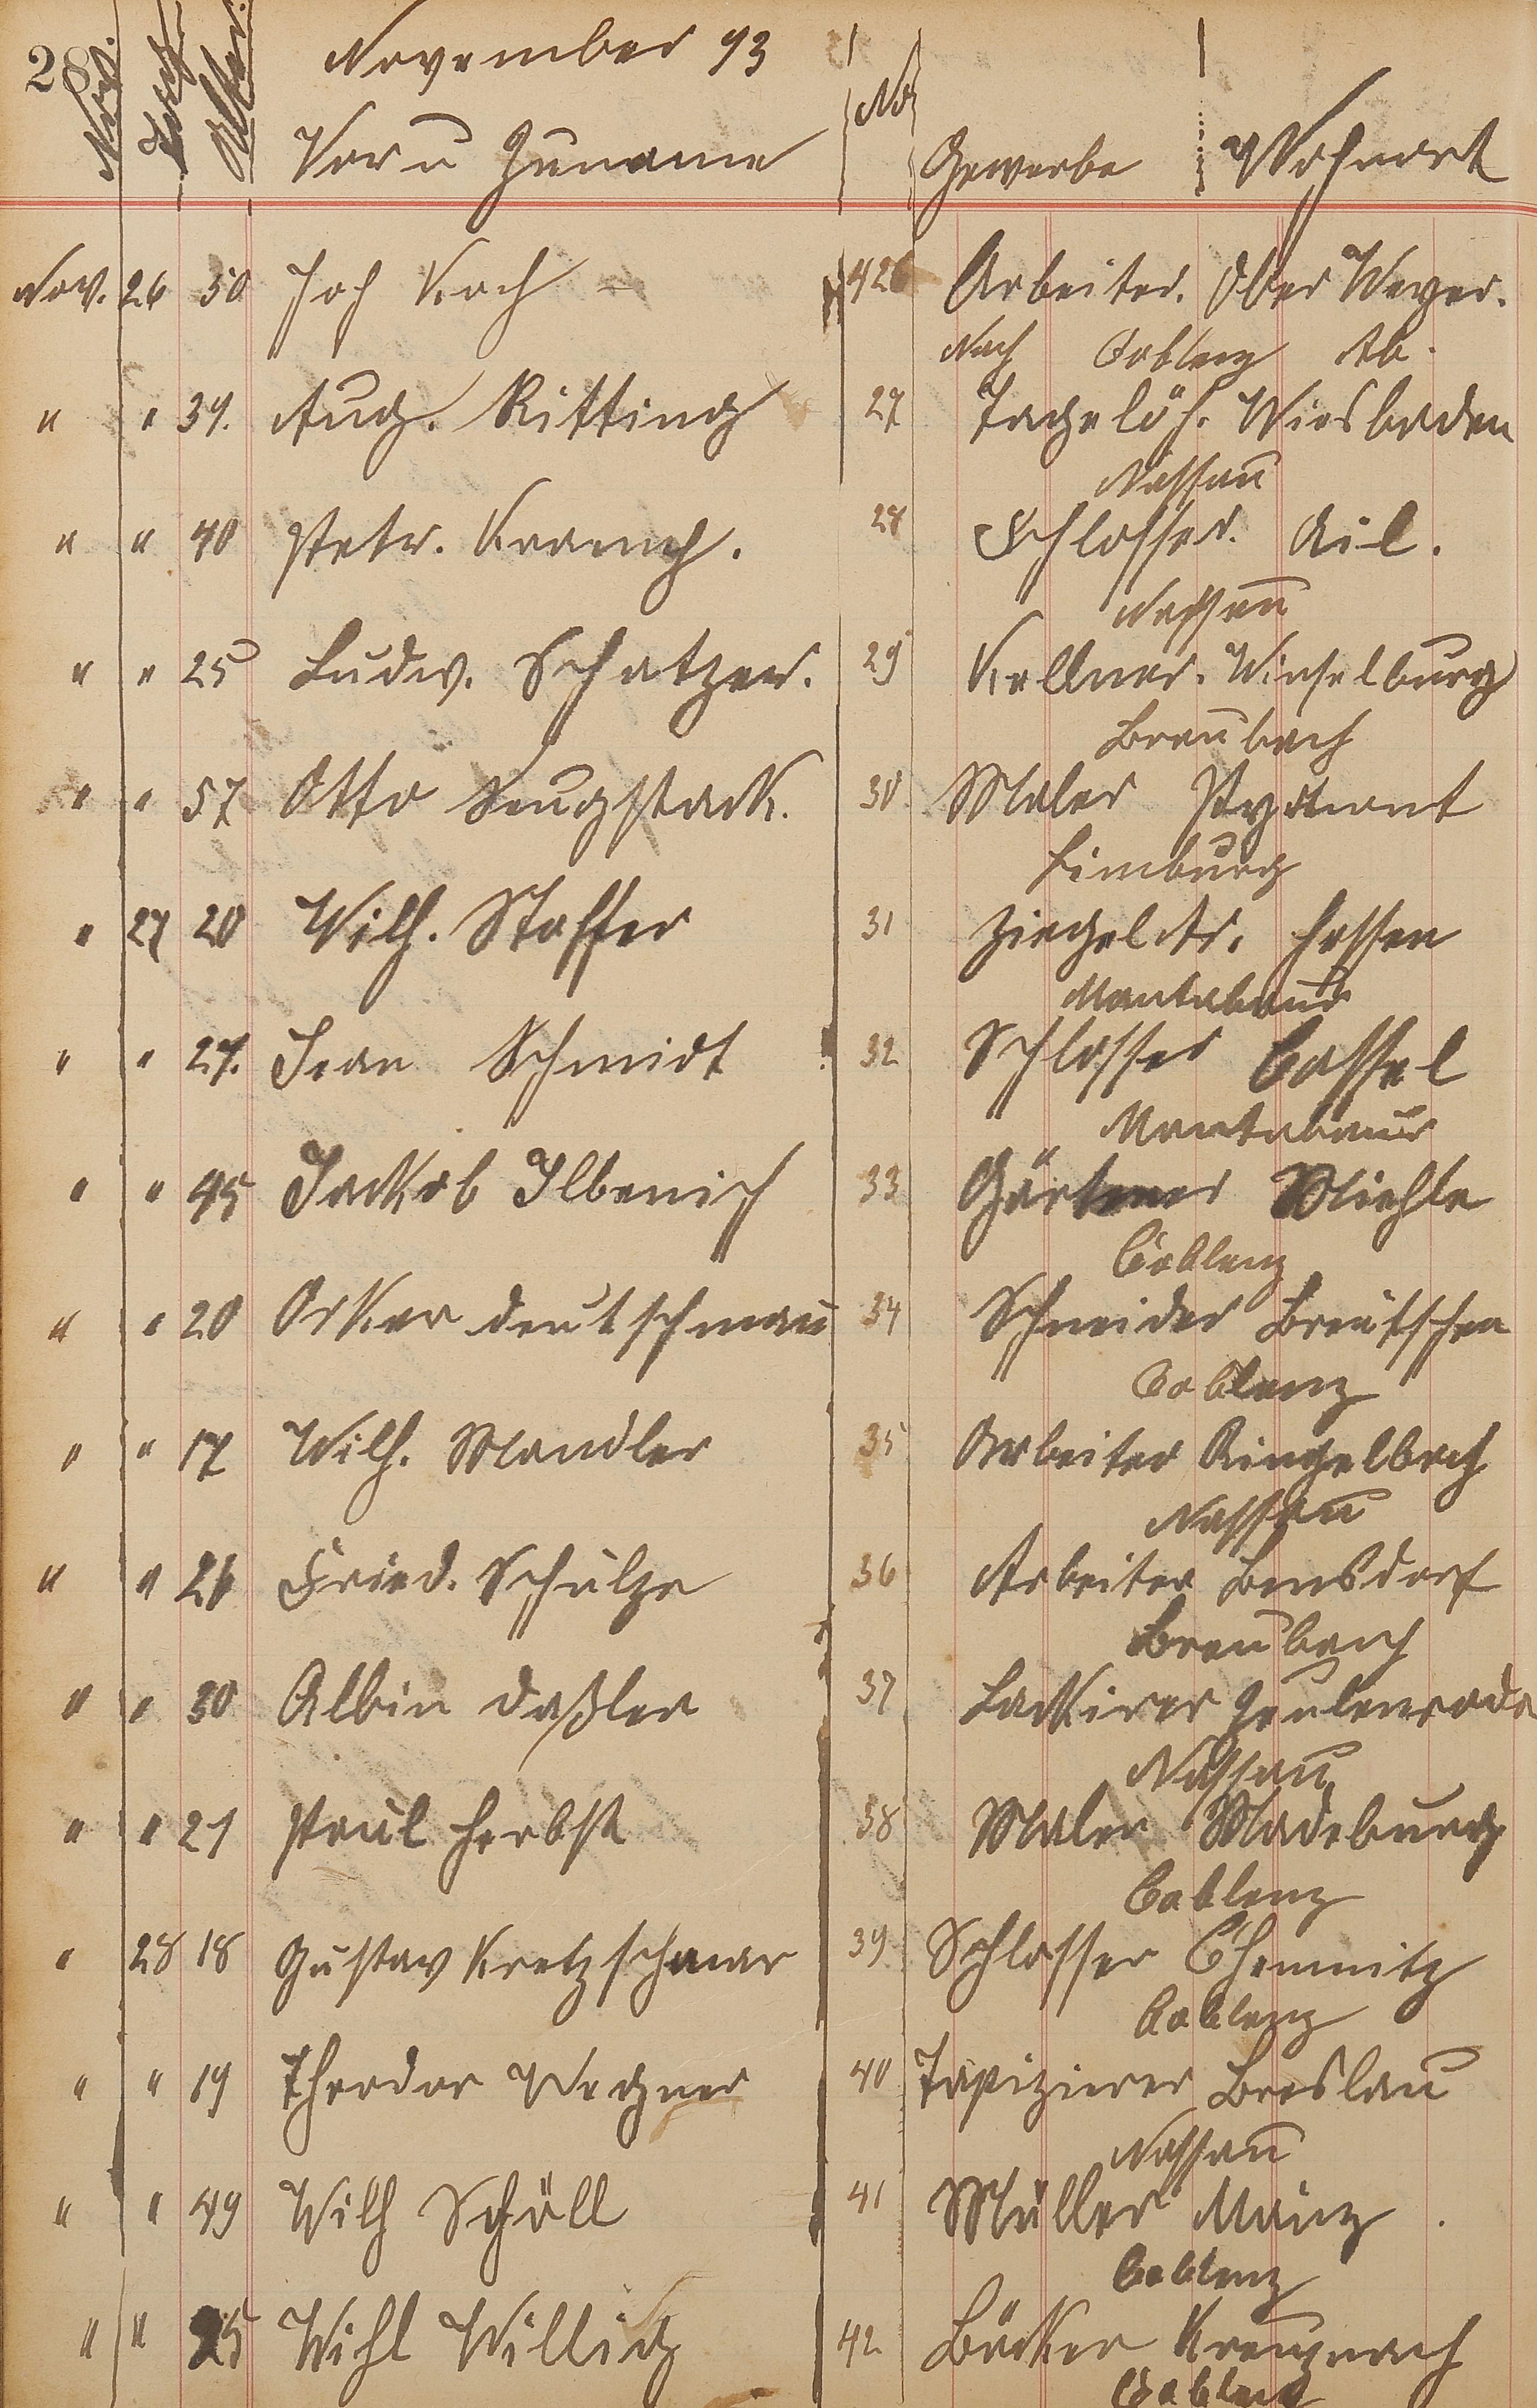 28 November 93
Nov. Tag Alter Vor u Zuname No Gewerbe Wohnort
Nov. 26 50 Joh Koch 426 Arbeiter. Ober Weyer.
Nach Coblenz Ab.
" " 39. Aug. Ritting 27 Tagelöh. Wiesbaden
Nassau
" " 40 Petr. 28 Schlosser. Ail.
Nassau
" " 25 Ludw. Schatzer. 29 Kellner.
Braubach
" " 57 Otto 30 Maler Pyrmont
Limburg
" 27 20 Wilh. Staffer 31 Ziegelar. Hessen
Montabaur
" " 27. Jean Schmidt 32 Schlosser Cassel
Montabaur
" " 45 Jackob Ilbenisch 33 Gärtner Miehle
Coblenz
" " 20 Oskar Deutschman 34 Schneider
Coblenz
" " 17 Wilh. Mandler 35 Arbeiter Ringelbach
Nassau
" " 26 Fried. Schulze 36 Arbeiter Bensdorf
Braubach
" " 30 Albin Daßler 37 Lackirer Zeulenroda
Nassau
" " 21 Paul Herbst 38 Maler Madeburg
Coblenz
" 28 18 Gustav Kretzschmar 39 Schlosser Chemnitz
Coblenz
" " 19 Theodor Wegner 40 Tapizierer Breslau
Nassau
" " 49 Wilh Schöll 41 Müller Mainz.
Coblenz
" " 25 Wihl Willig 42 Bäcker Kreuznach
Coblenz